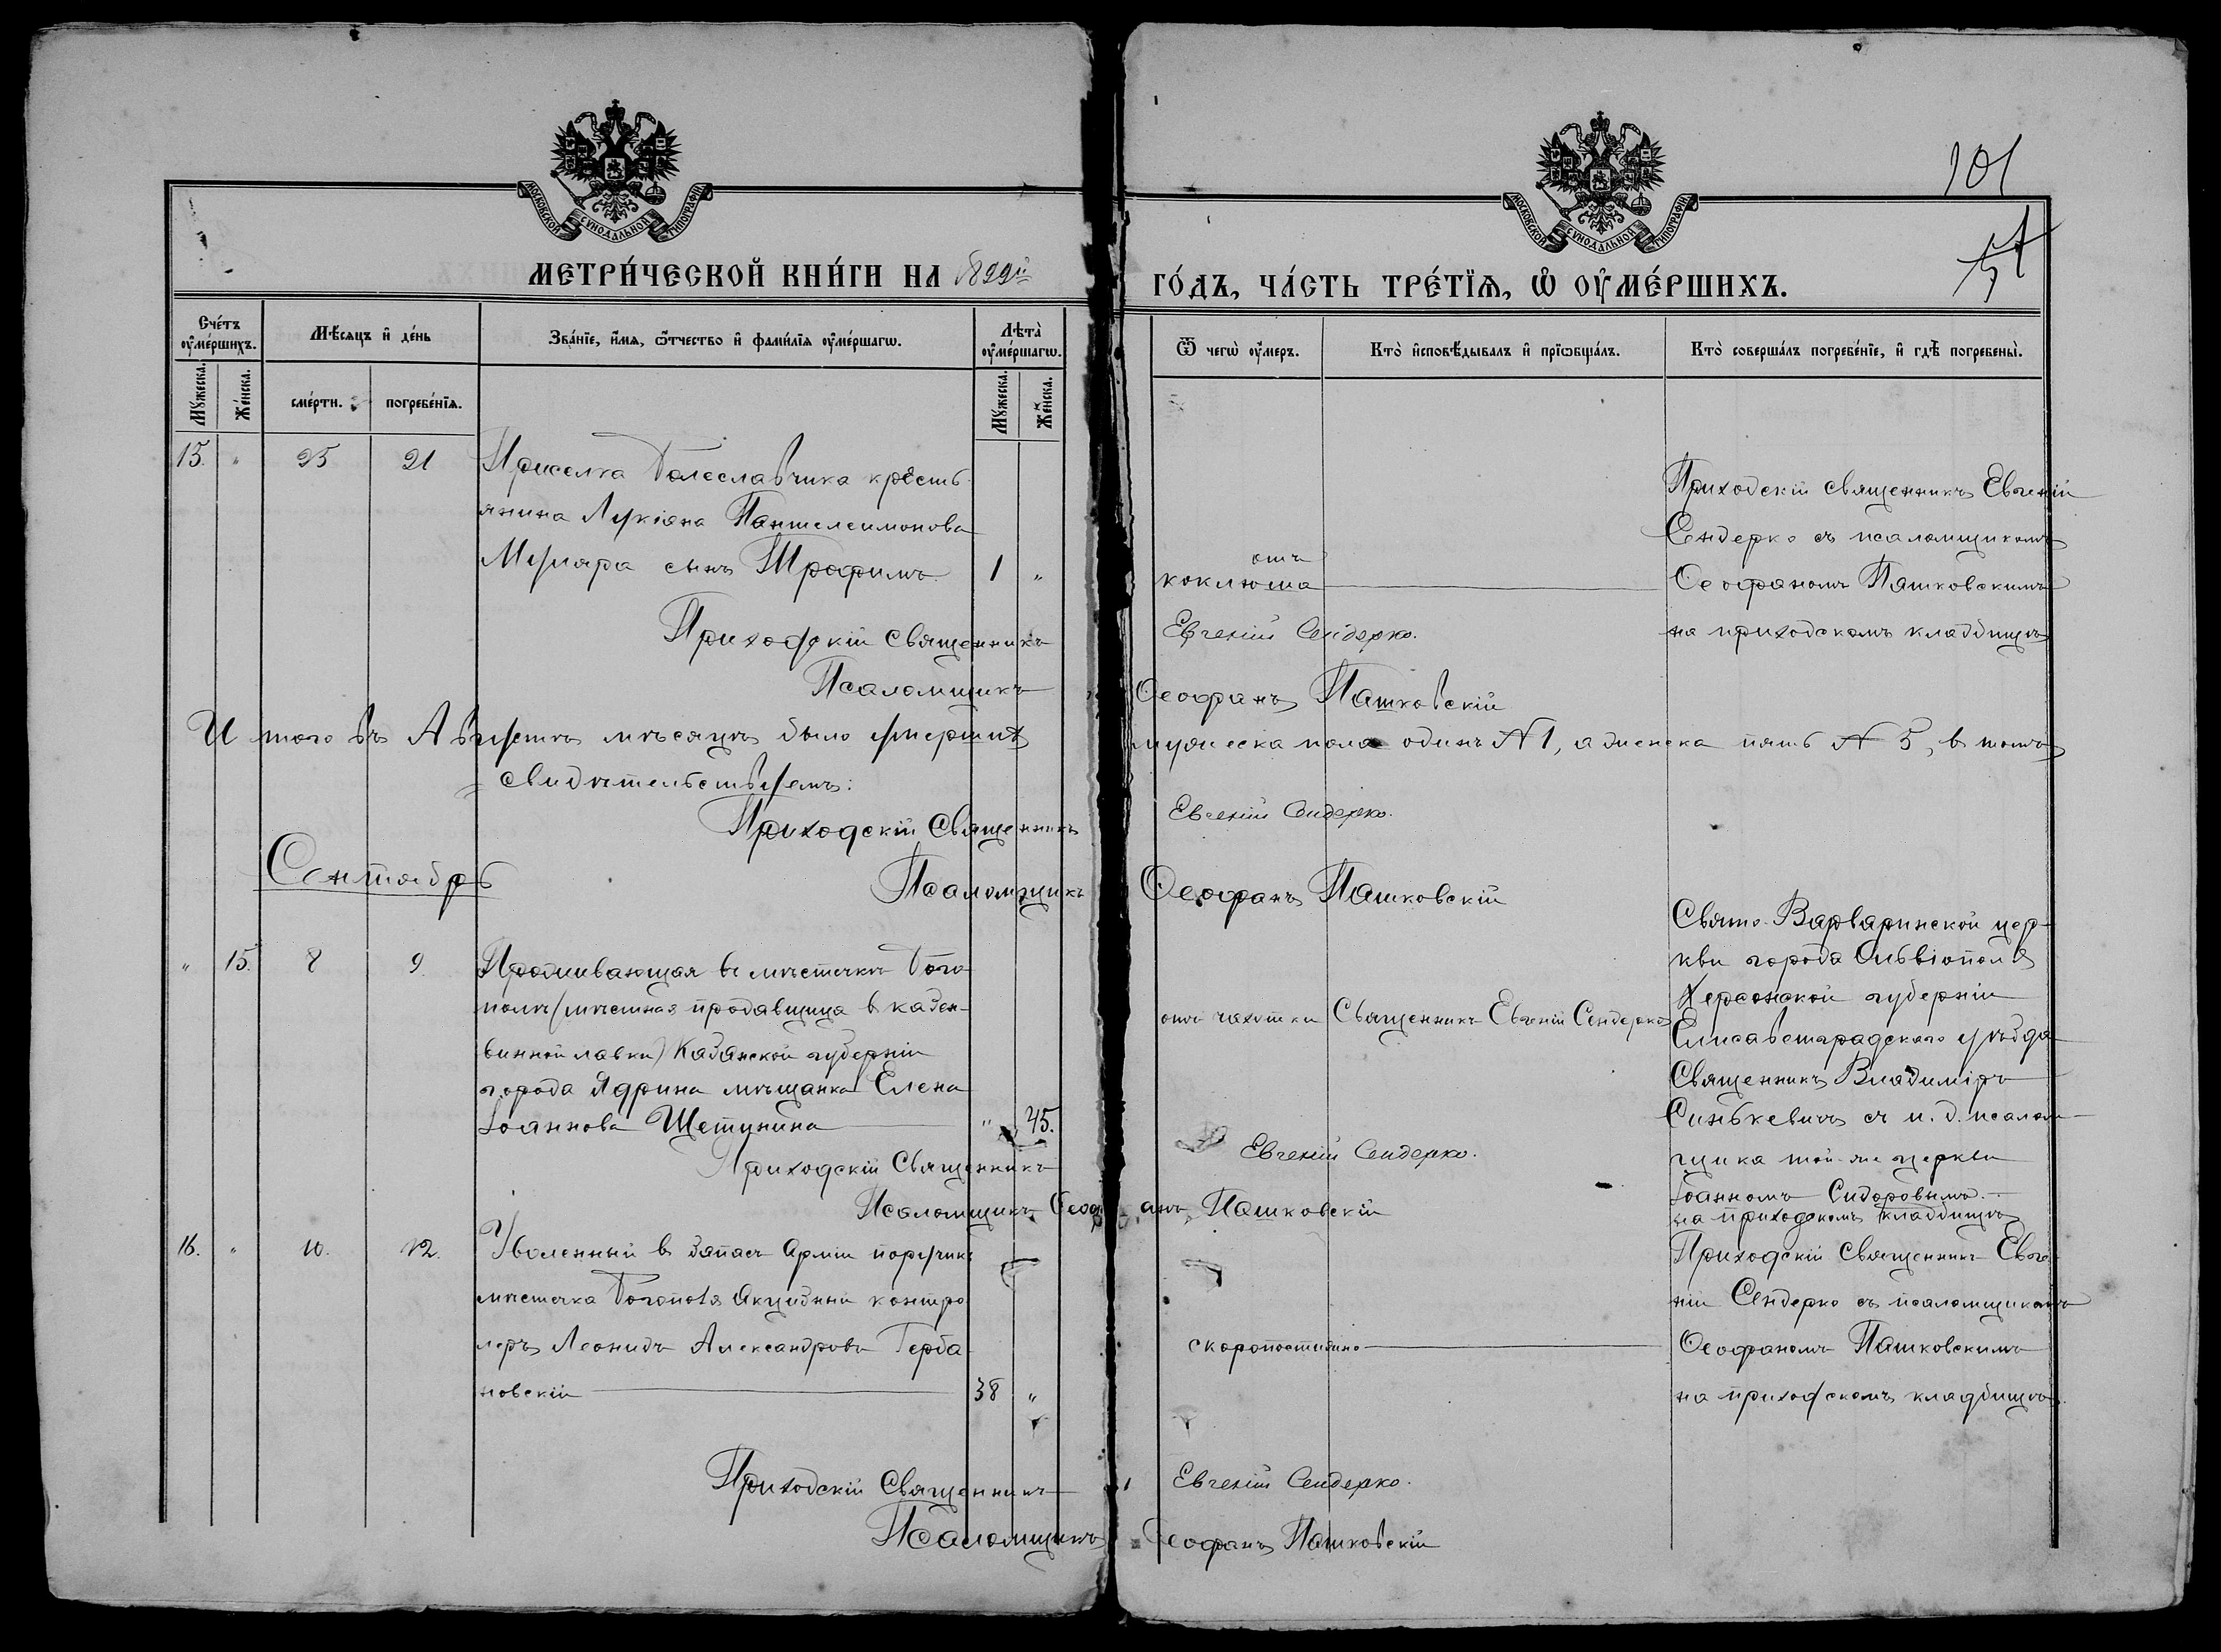 101
57
МОСКОВСКОЙ СѴНОДАЛЬНОЙ ТИПОГРАФІИ
МОСКОВСКОЙ СѴНОДАЛЬНОЙ ТИПОГРАФІИ
МЕТРИ́ЧЕСКОЙ КНИ́ГИ НА 1899й
ГО́ДЪ, ЧА́СТЬ ТРЕ́ТЇѦ, Ѡ҆ ОУ҆МЕ́РШИХЪ.
Сче́тъ оу҆ме́ршихъ.
Мꙋ́жеска.
Же́нска.
Мѣ́сяцъ и҆ де́нь
сме́рти.
погребе́нїѧ.
Зва́нїе, и҆́мѧ, ѻ҆́тчество и҆ фами́лїѧ оу҆ме́ршагѡ.
Лѣта̀ оу҆ме́ршагѡ.
Мꙋ́жеска.
Же́нска.
Ѿ чегѡ̀ оу҆́меръ.
Кто̀ и҆сповѣ́дывалъ и҆ прїѡбща́лъ.
Кто̀ соверша́лъ погребе́нїе, и҆ гдѣ̀ погребены̀.
15. " 25 21 Приселка Болеславчика кресть-
янина Лукіана Пантелеимонова
Муляра сынъ Трофимъ 1 "
отъ
коклюша
Приходскій священникъ Евгеній
Сендерко съ псаломщикомъ
Ѳеофаномъ Пашковскимъ
на приходскомъ кладбищѣ
Приходскій Священникъ Евгеній Сендерко.
Псаломщикъ Ѳеофанъ Пашковскій
Итого въ Августѣ мѣсяцѣ было умершихъ мужеска пола одинъ № 1, а женска пять № 5, в томъ
свидѣтельствуемъ:
Приходскій Священникъ Евгеній Сендерко.
Псаломщикъ Ѳеофанъ Пашковскій
Сентябрь
" 15. 8 9. Проживающая в мѣстечкѣ Бого-
полѣ (мѣстная продавщица в казен-
винной лавки) Казанской губерніи
города Ядрина мѣщанка Елена
Іоаннова Щетинина " 45.
отъ чахотки Священникъ Евгеній Сендерко
Свято-Варваринской цер-
кви города Ольвіополя
Херсонской губерніи
Елисаветградского уѣзда
Священникъ Владиміръ
Синькевичъ съ и. д. псалом-
щика той-же церкви
Іоанномъ Сидоровымъ
на приходскомъ кладбищѣ
Приходскій Священникъ Евгеній Сендерко.
Псаломщикъ Ѳеофанъ Пашковскій
16. " 10. 12. Уволенный в запасъ Арміи поручикъ
мѣстечка Богополя Акцизный контро
леръ Леонидъ Александровъ Герба
новскій 38 "
скоропостижно
Приходскій Священникъ Евге-
ній Сендерко съ псаломщикомъ
Ѳеофаномъ Пашковскимъ
на приходскомъ кладбищѣ.
Приходскій Священникъ Евгеній Сендерко.
Псаломщикъ Ѳеофанъ Пашковскій